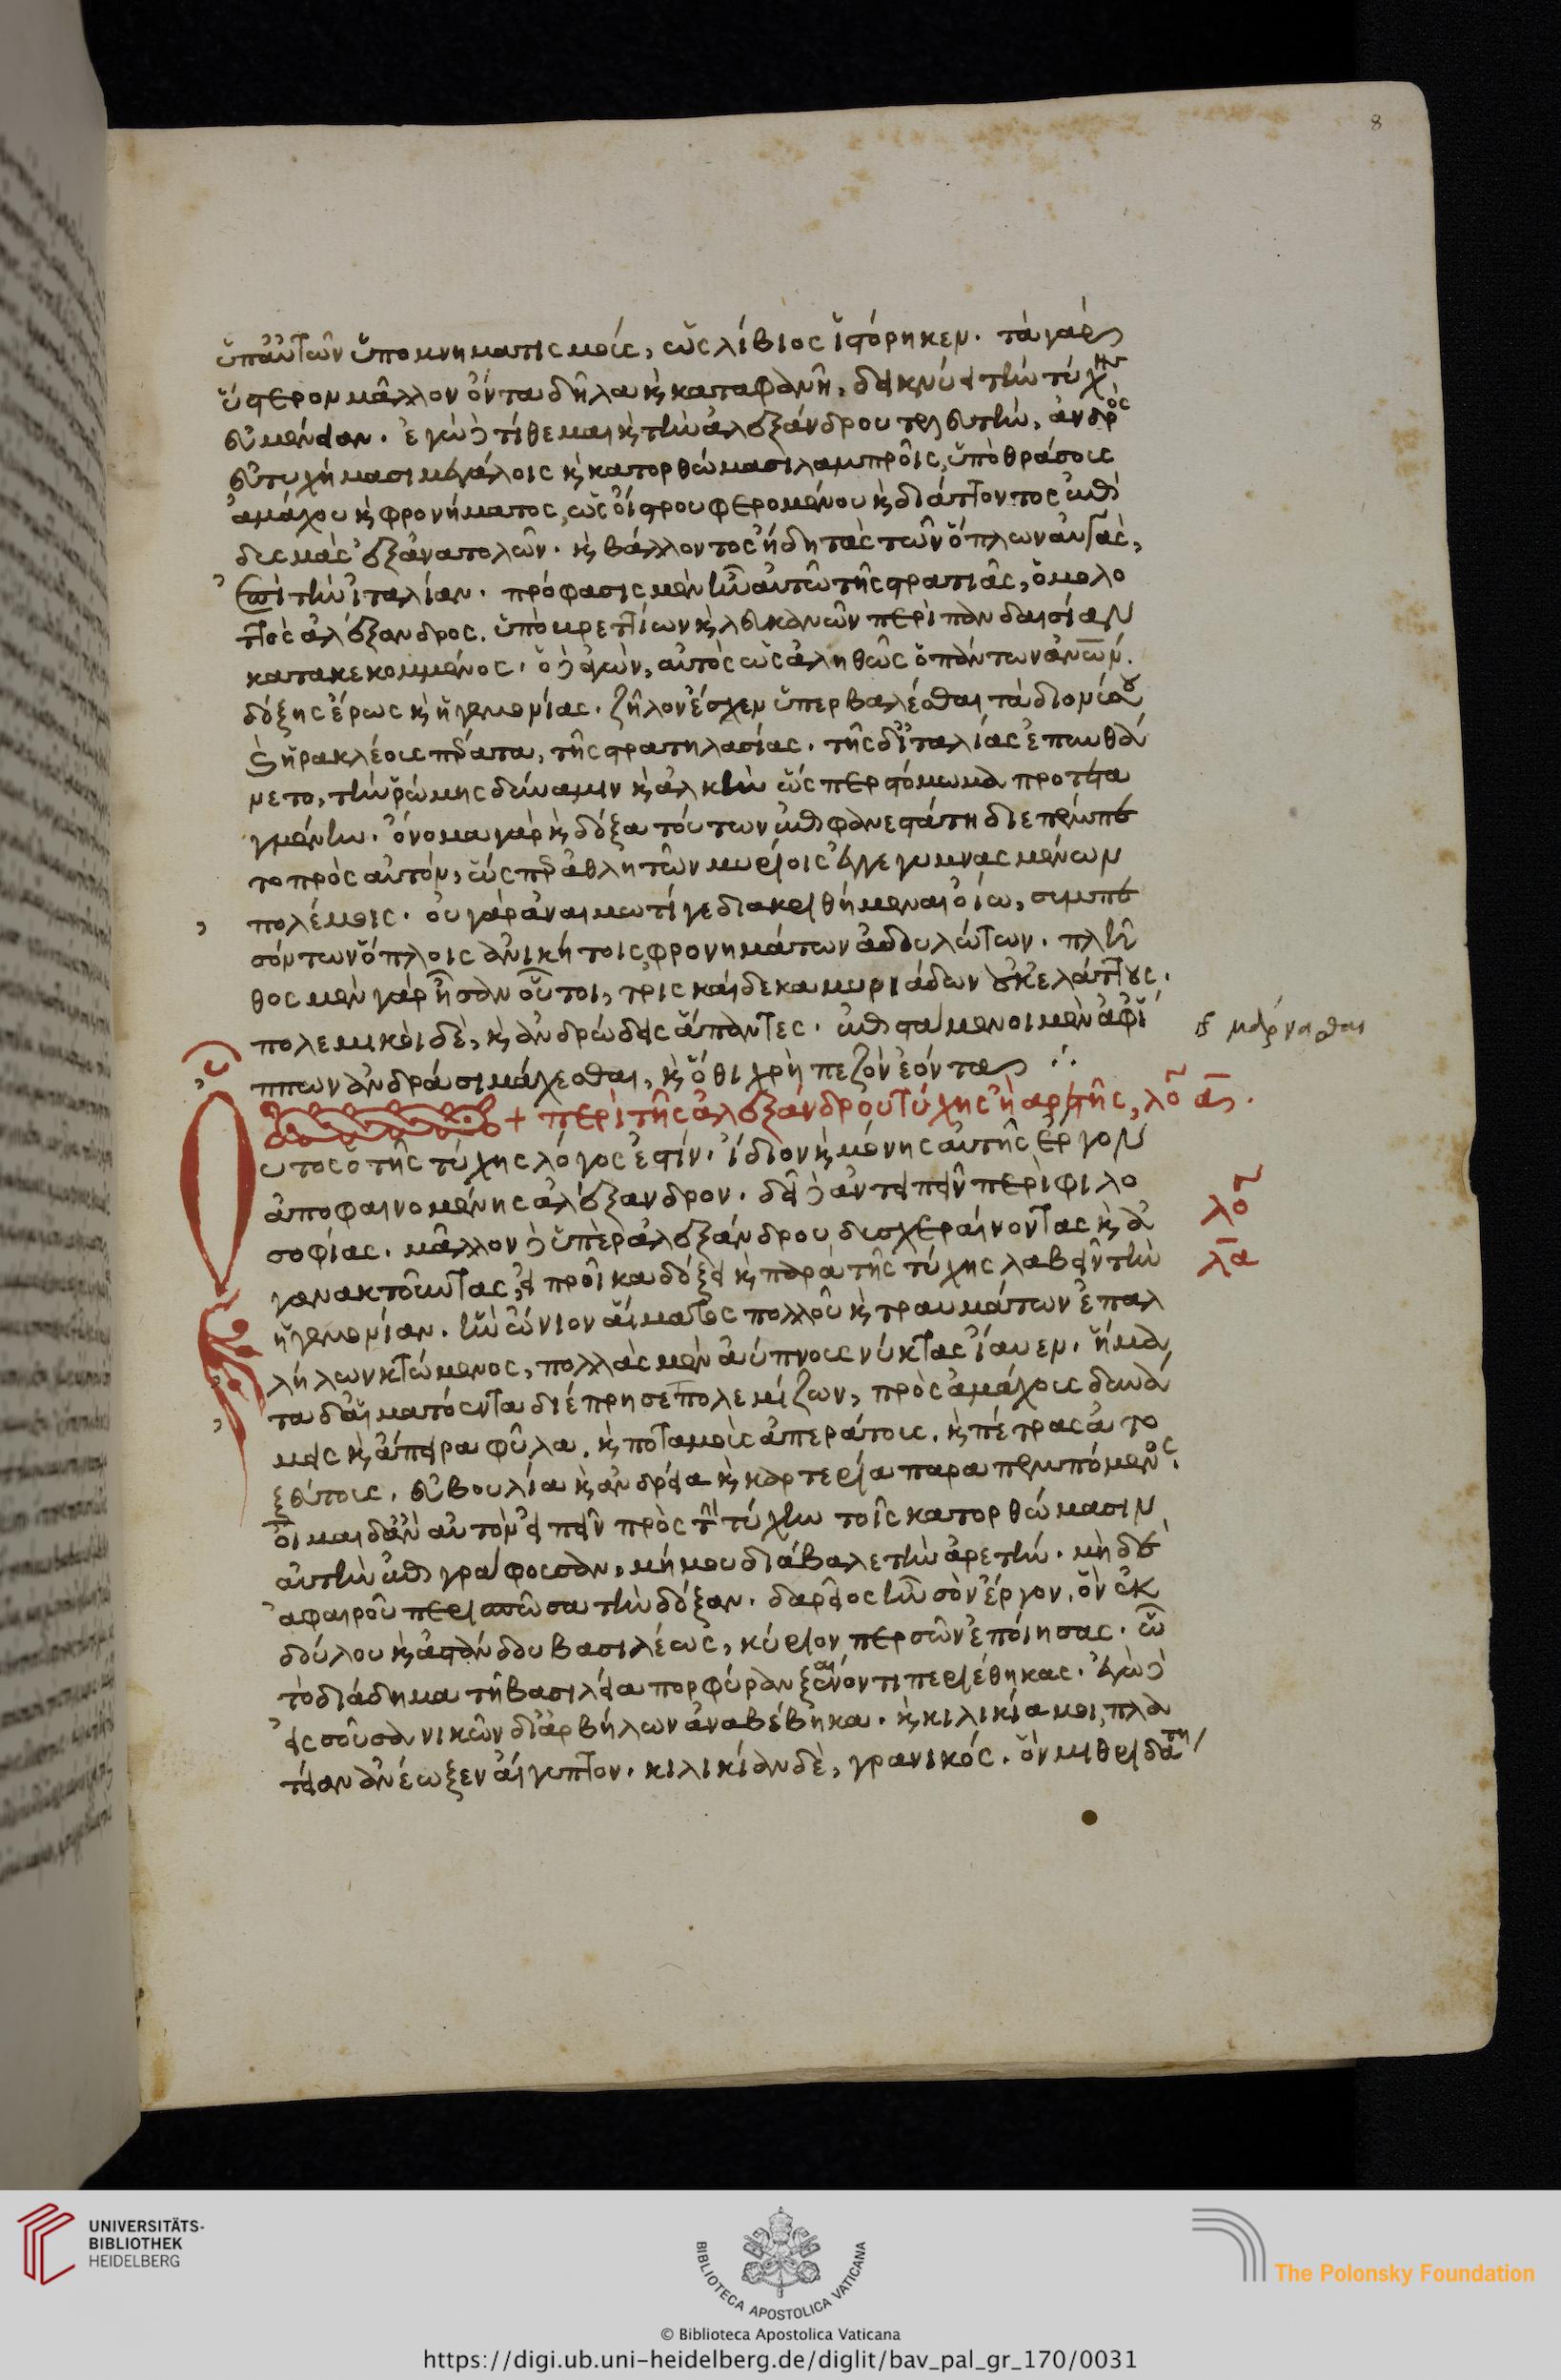 8
ὑπ' αὐτῶν ὑπομνηματισμοὺς, ὡς λίβιος ἱστόρηκεν. τὰ γὰρ
ὕστερον μᾶλλον ὄντα δῆλα κ καταφανῆ, δεικνύει τὴν τύχην
εὐμένειαν. ἐγὼ δὲ τίθεμαι κ τὴν ἀλεξάνδρου τελευτὴν, ἀνδρὸς
εὐτυχήμασι μεγάλοις κ κατορθώμασι λαμπροῖς, ὑπὸ θράσους
ἀμάχου κ φρονήματος, ὡς ἄστρου φερομένου κ διάττοντος ἐπὶ
δυσμὰς ἐξ ἀνατολῶν. κ βάλλοντος ἤδη τὰς τῶν ὅπλων αὐγὰς,
ἐπὶ τὴν ἰταλίαν. πρόφασις μὲν ἦν αὐτῶ τῆς στρατιᾶς, ὁ μολο
ττὸς ἀλέξανδρος. ὑπὸ βρεττίων κ λευκανῶν περὶ πανδοσίαν
κατακεκομμένος. ὁ δὲ ἄγων, αὐτὸς ὡς ἀληθῶς ὁ πάντων ἀν̅ων.
δόξης ἔρως κ ἡγεμονίας. ζῆλον ἔσχεν ὑπερβαλέσθαι τὰ διονύσου
κ ἡρακλέους πέρατα, τῆς στρατηλασίας. τῆς δ' ἰταλίας ἐπυνθά
νετο, τὴν ῥώμης δύναμιν κ ἀλκὴν ὥσπερ στόμωμα προτετα
γμένην. ὄνομα γὰρ κ δόξα τούτων ἐπιφανεστάτη διεπέμπε
το πρὸς αὐτὸν, ὥσπερ ἀθλητῶν μυρίοις ἐγγεγυμνασμένων
πολέμοις. οὐ γὰρ ἀναιμωτί γε διακριθήμεναι ὀίω, συμπε
σόντων ὅπλοις ἀνικήτοις, φρονημάτων ἀδουλώτων. πλῆ
θος μὲν γὰρ ἦσαν οὗτοι, τρισκαίδεκα μυριάδων οὐκ ἐλάττους.
πολεμικοὶ δὲ, κ ἀνδρώδεις ἅπαντες. ἐπιστάμενοι μὲν ἀφ' ἵ
ππων ἀνδράσι μάχεσθαι, κ ὅθι χρὴ πεζὸν ἐόντας ∴
μάρνασθαι
+ περὶ τῆς ἀλεξάνδρου τύχης ἢ ἀρετῆς, λό α̅.
Οὗτος ὁ τῆς τύχης λόγος ἐστίν. ἴδιον κ μόνης αὐτῆς ἔργον
ἀποφαινομένης ἀλέξανδρον. δεῖ δὲ ἀντειπεῖν περὶ φιλο
σοφίας. μᾶλλον δὲ ὑπὲρ ἀλεξάνδρου δυσχεραίνοντας κ ἀ
γανακτοῦντας, εἰ προῖκα δόξει κ παρὰ τῆς τύχης λαβεῖν τὴν
λό
λ̅α
ἡγεμονίαν. ἣν ὤνιον αἵματος πολλοῦ κ τραυμάτων ἐπαλ
λήλων κτώμενος, πολλὰς μὲν ἀύπνους νύκτας ἴαυεν. ἤμα
τα δ' αἱματόεντα διέπρησε πολεμίζων, πρὸς ἀμάχους δυνά
μεις κ ἄπειρα φῦλα, κ ποταμοὺς ἀπεράτους. κ πέτρας ἀτο
ξεύτους, εὐβουλία κ ἀνδρεία κ καρτερία παραπεμπόμενος.
οἶμαι δ' ἂν αὐτὸν εἰπεῖν πρὸς τὴν τύχην τοῖς κατορθώμασιν
αὑτὴν ἐπιγράφουσαν, μή μου διάβαλε τὴν ἀρετὴν. μὴ δὲ
ἀφαιροῦ περισπῶσα τὴν δόξαν. δαρεῖος ἦν σὸν ἔργον, ὃν ἐκ
δούλου κ ἀστάνδου βασιλέως, κύριον περσῶν ἐποίησας. ὧ
τὸ διάδημα τῆ βασιλεία πορφύραν ξαίνοντι περιέθηκας. ἐγὼ δὲ
εἰς σοῦσα νικῶν δι' ἀρβήλων ἀναβέβηκα. κ κιλικία μοι πλα
τεῖαν ἀνέωξεν αἴγυπτον. κιλικίαν δὲ, γρανικός. ὃν μιθριδάτη
UNIVERSITÄTS-
BIBLIOTHEK
HEIDELBERG
BIBLIOTECA APOSTOLICA VATICANA
The Polonsky Foundation
© Biblioteca Apostolica Vaticana
https://digi.ub.uni-heidelberg.de/diglit/bav_pal_gr_170/0031